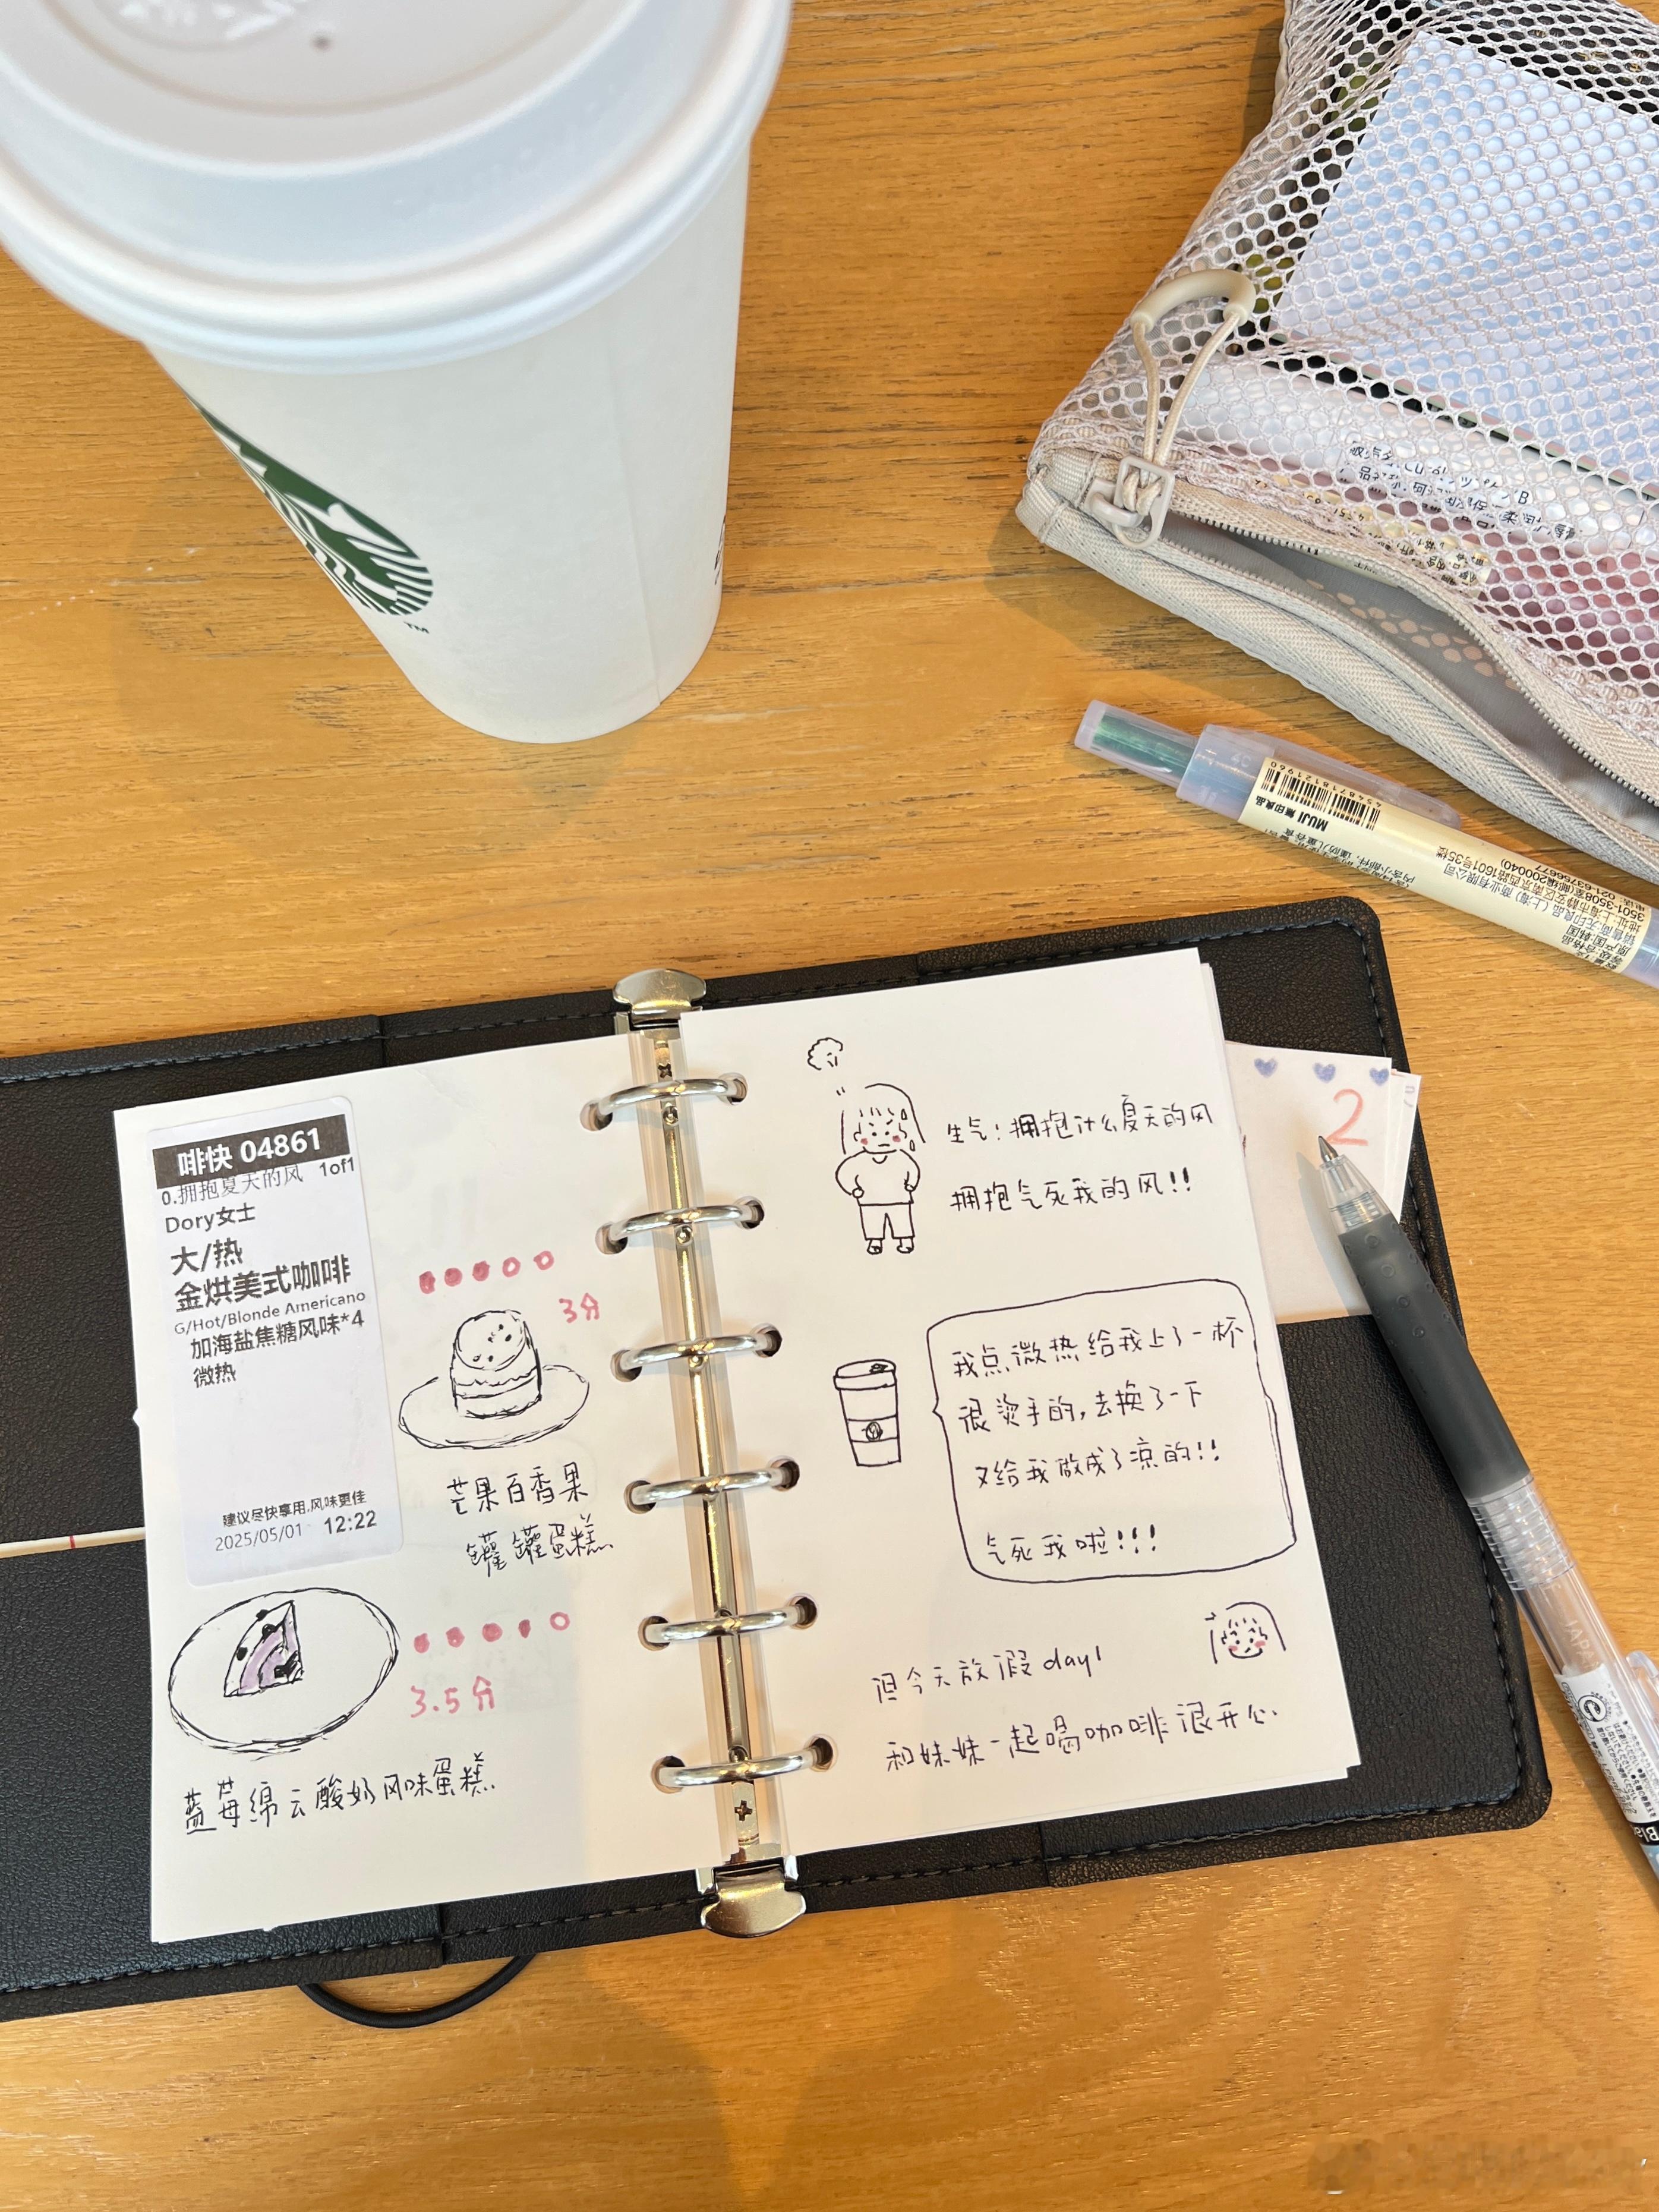 TM
MUJI 無印良品
4548718121960
啡快 04861
0.拥抱夏天的风 1of1
Dory女士
大/热
金烘美式咖啡
G/Hot/Blonde Americano
加海盐焦糖风味*4
微热
建议尽快享用,风味更佳
2025/05/01 12:22
3分
芒果百香果
罐罐蛋糕.
3.5分
蓝莓绵云酸奶风味蛋糕.
生气!拥抱什么夏天的风
拥抱气死我的风!!
我点微热给我上了一杯
很烫手的,去换了一下
又给我做成了凉的!!
气死我啦!!!
但今天放假day1
和妹妹一起喝咖啡很开心.
2
JAPAN